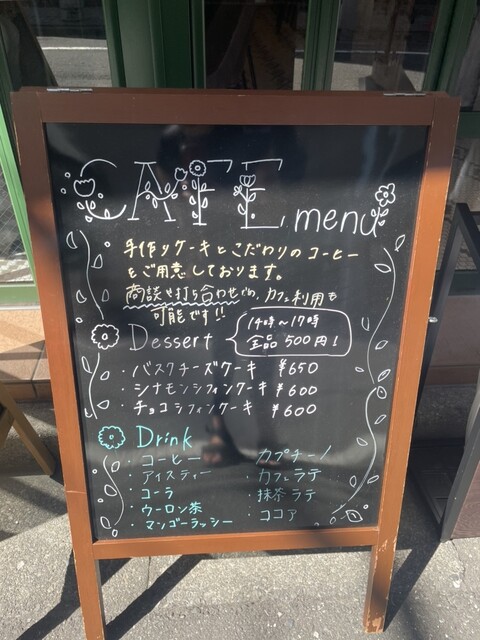 CAFE menu
手作りケーキとこだわりのコーヒー
をご用意しております。
商談や打ち合わせでの、カフェ利用も
可能です!!
Dessert
14時～17時
全品 500円!
・バスクチーズケーキ ¥650
・シナモンシフォンケーキ ¥600
・チョコシフォンケーキ ¥600
Drink
・コーヒー ・カプチーノ
・アイスティー ・カフェラテ
・コーラ ・抹茶ラテ
・ウーロン茶 ・ココア
・マンゴーラッシー